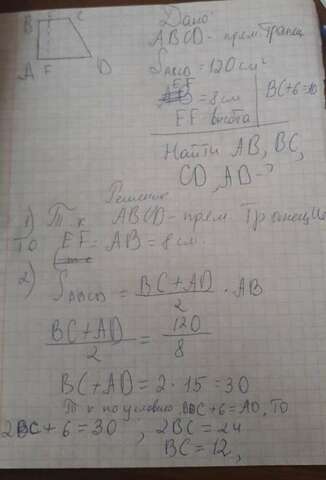 B E C
A F D
Дано:
ABCD - прям. трапец
S ABCD = 120 см²
EF = 8 см
BC+6=AD
EF - высота
Найти AB, BC,
CD, AD - ?
Решение
1) Т к ABCD - прям. трапеция
то EF = AB = 8 см.
2)
S ABCD = BC + AD / 2 · AB
BC + AD / 2 = 120 / 8
BC + AD = 2 · 15 = 30
Т к по условию BC + 6 = AD, то
2BC + 6 = 30, 2BC = 24
BC = 12,